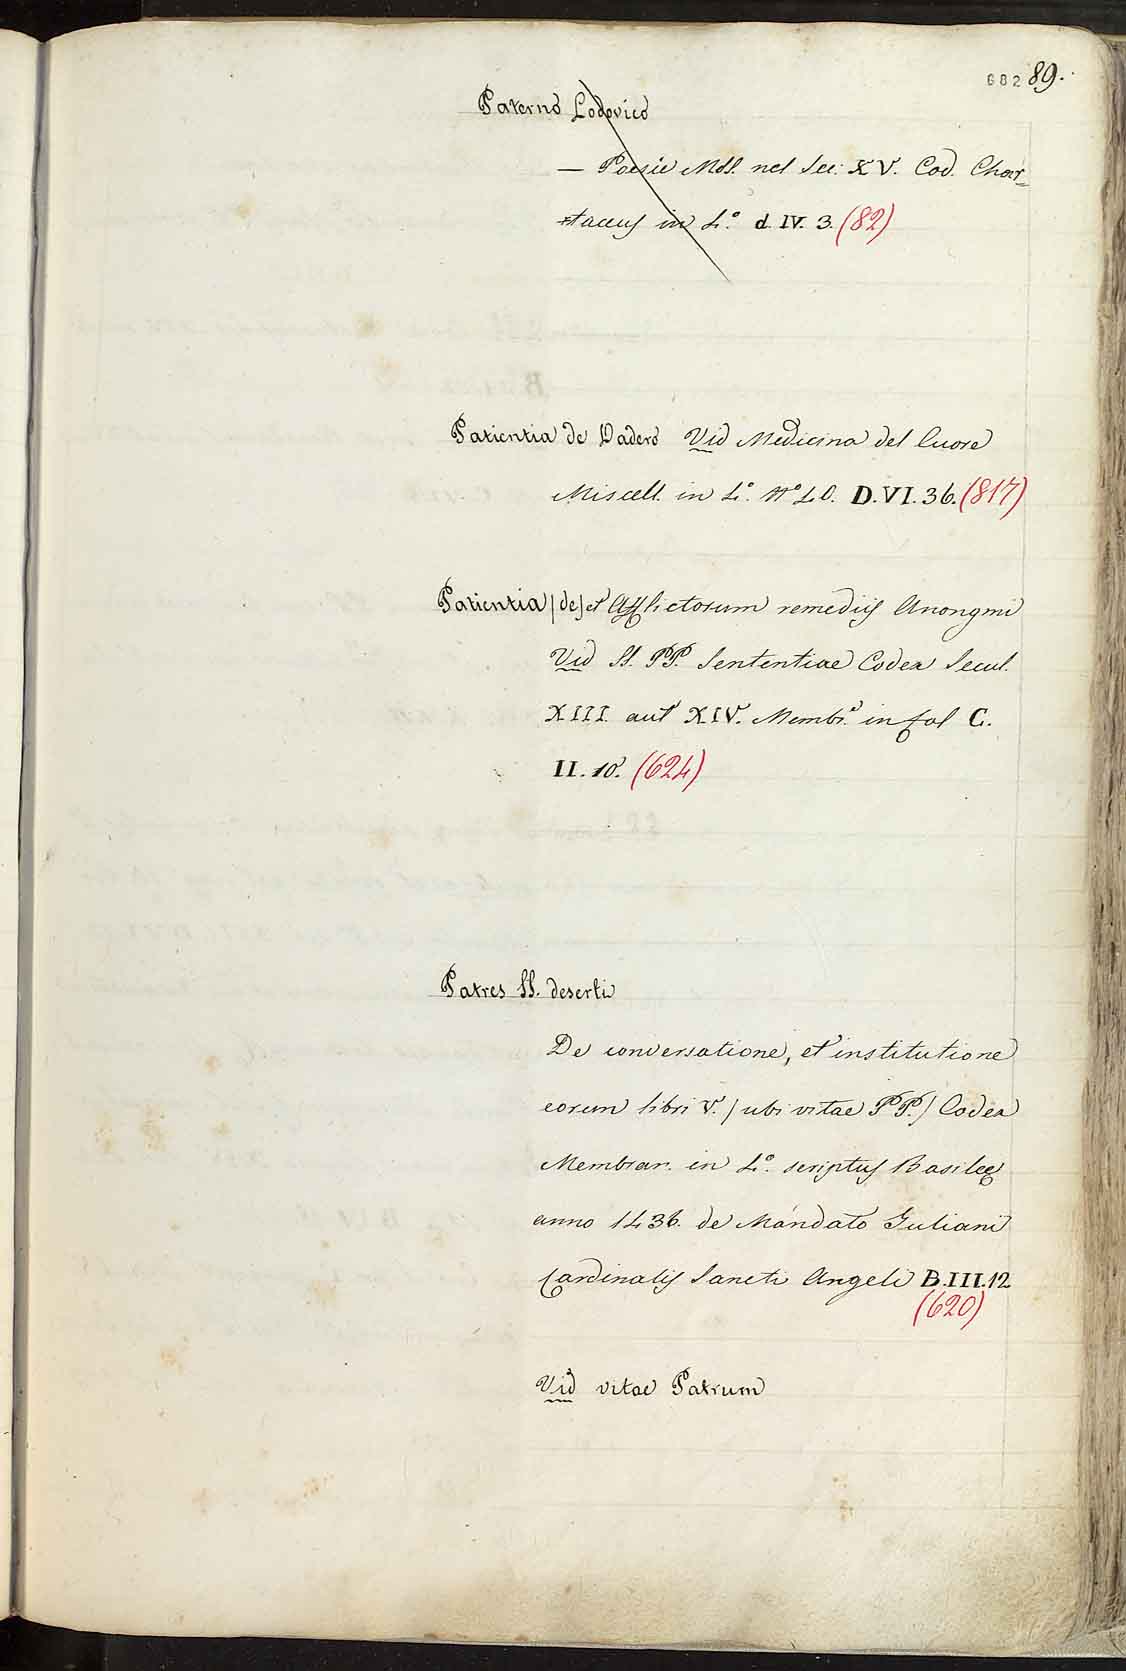 682 89.
Paternò Lodovico
— Poesie MSS. nel Sec. XV. Cod. Char=
=taceus in 4.º d. IV. 3. (82)
Patientia de Vadero Vid Medicina del Cuore
Miscell. in 4.º Nº 40. D. VI. 36. (817)
Patientia (de) et Afflictorum remediis Anonymi
Vid SS. PP. Sententiae Codex Secul.
XIII aut XIV. Membr. in fol C.
II. 10. (624)
Patres SS. deserti
De conversatione, et institutione
eorum libri V. (ubi vitae PP.) Codex
Membran. in 4.º scriptus Basileę
anno 1436. de Mandato Juliani
Cardinalis Sancti Angeli B. III. 12
(620)
Vid vitae Patrum